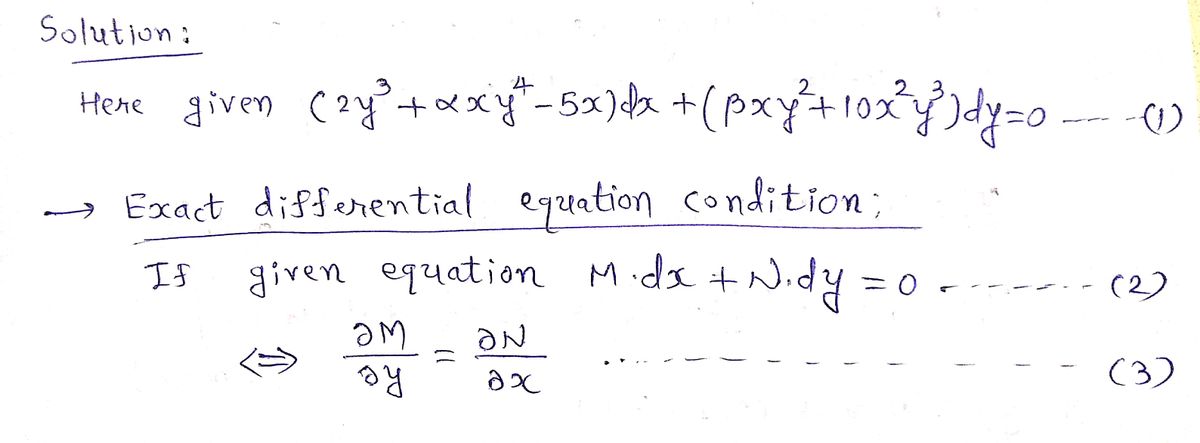 Solution:
Here given (2y³+αxy⁴-5x)dx+(βxy²+10x²y³)dy=0 ---- -(1)
→ Exact differential equation condition;
If given equation M·dx + N·dy = 0 -------- (2)
⇔ ∂M/∂y = ∂N/∂x ------------ (3)